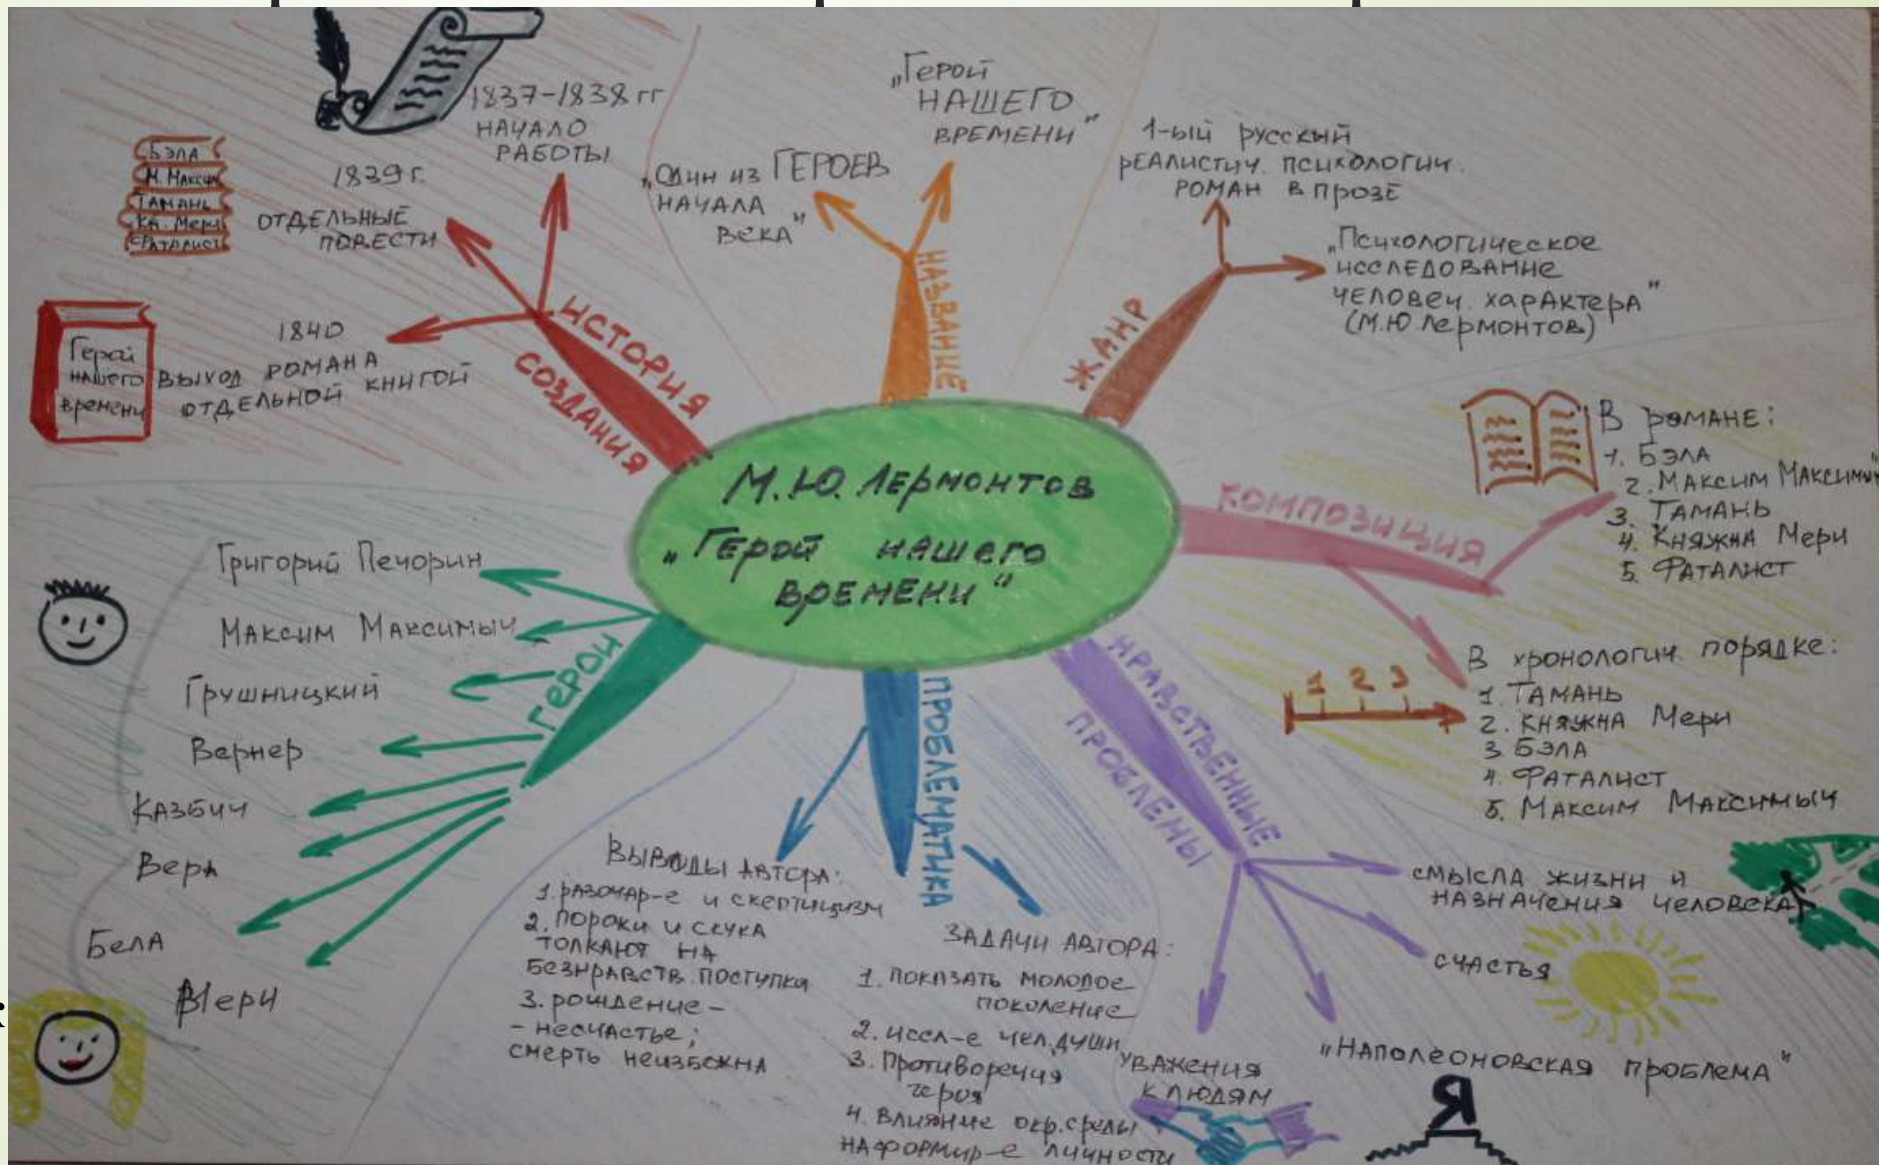 М.Ю. Лермонтов
„Герой нашего
времени“
ИСТОРИЯ
СОЗДАНИЯ
1837-1838 гг
НАЧАЛО
РАБОТЫ
1839 г.
ОТДЕЛЬНЫЕ
ПОВЕСТИ
БЭЛА
М. Максим
ТАМАНЬ
КН. Мери
ФАТАЛИСТ
1840
ВЫХОД РОМАНА
ОТДЕЛЬНОЙ КНИГОЙ
Герой
нашего
времени
НАЗВАНИЕ
„Один из ГЕРОЕВ
НАЧАЛА
ВЕКА“
„Герой
НАШЕГО
ВРЕМЕНИ“
ЖАНР
1-ый русский
реалистич. психологич.
роман в прозе
„Психологическое
исследование
человеч. характера“
(М.Ю Лермонтов)
КОМПОЗИЦИЯ
В романе:
1. БЭЛА
2. Максим Максимыч
3. ТАМАНЬ
4. Княжна Мери
5. Фаталист
В хронологич. порядке:
1. ТАМАНЬ
2. Княжна Мери
3 БЭЛА
4. Фаталист
5. Максим Максимыч
1 2 3
НРАВСТВЕННЫЕ
ПРОБЛЕМЫ
смысла жизни и
назначения человека
счастья
„Наполеоновская проблема“
Я
уважения
к людям
ПРОБЛЕМАТИКА
Выводы автора:
1. разочар-е и скептицизм
2. Пороки и скука
толкают на
безнравств. поступки
3. рождение -
- несчастье;
смерть неизбежна
Задачи автора:
1. показать молодое
поколение
2. иссл-е чел. души
3. Противоречия
героя
4. Влияние окр. среды
на формир-е личности
ГЕРОИ
Григорий Печорин
Максим Максимыч
Грушницкий
Вернер
Казбич
Вера
Бела
Мери